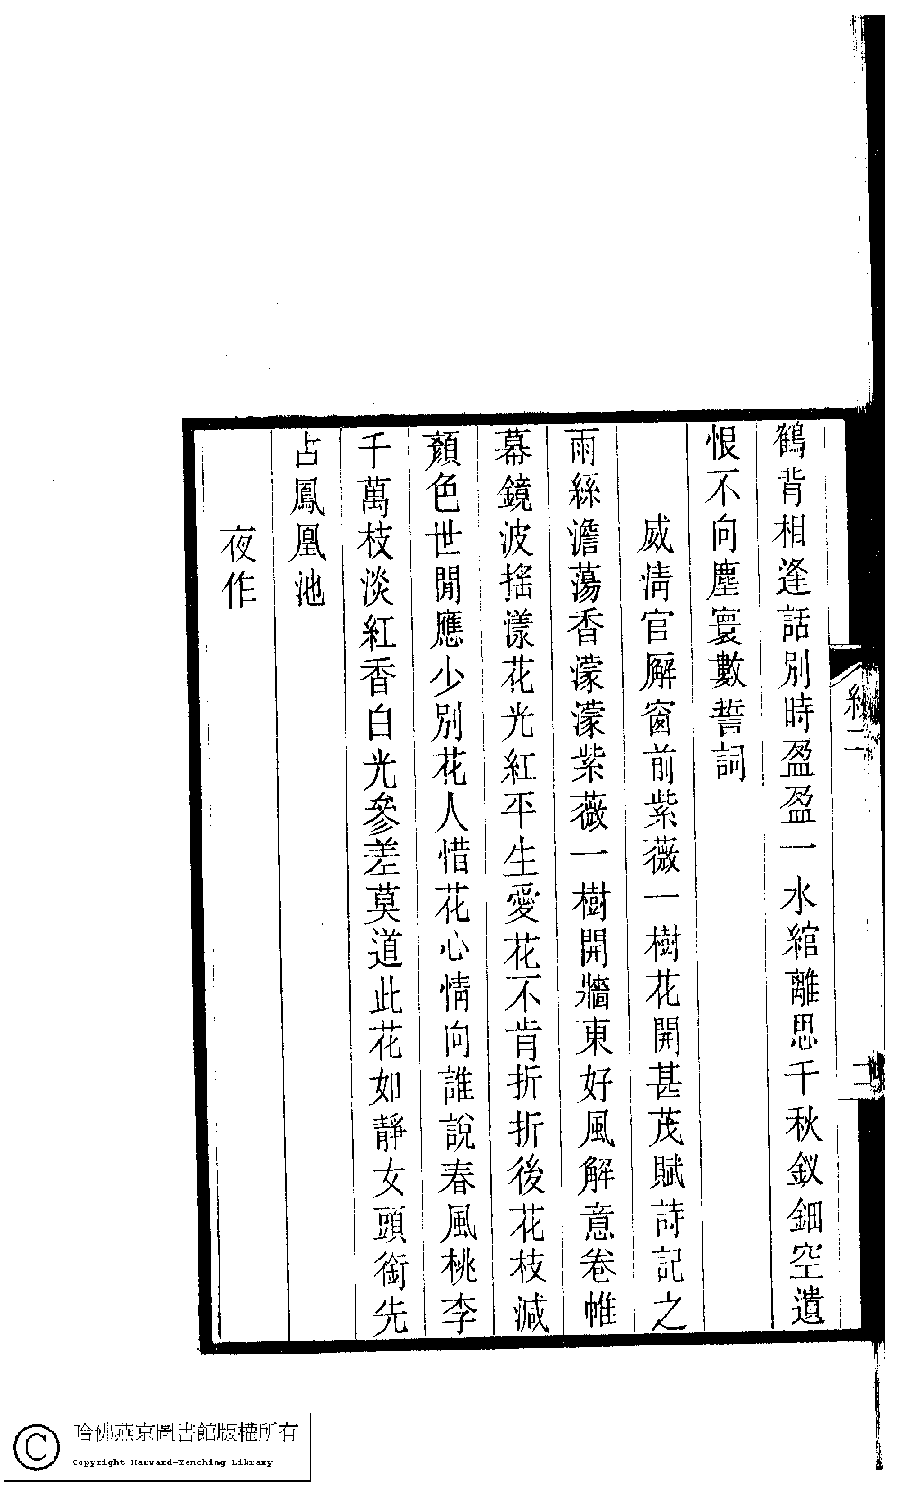 鶴背相逢話別時盈盈一水綰離思千秋釵鈿空遺
恨不向塵寰數誓詞
威淸官廨窗前紫薇一樹花開甚茂賦詩記之
雨絲澹蕩香濛濛紫薇一樹開牆東好風解意卷帷
幕鏡波搖漾花光紅平生愛花不肯折折後花枝減
顏色世閒應少別花人惜花心情向誰說春風桃李
千萬枝淡紅香白光參差莫道此花如靜女頭銜先
占鳳凰池
夜作
二
哈佛燕京圖書館版權所有
Copyright Harvard-Yenching Library